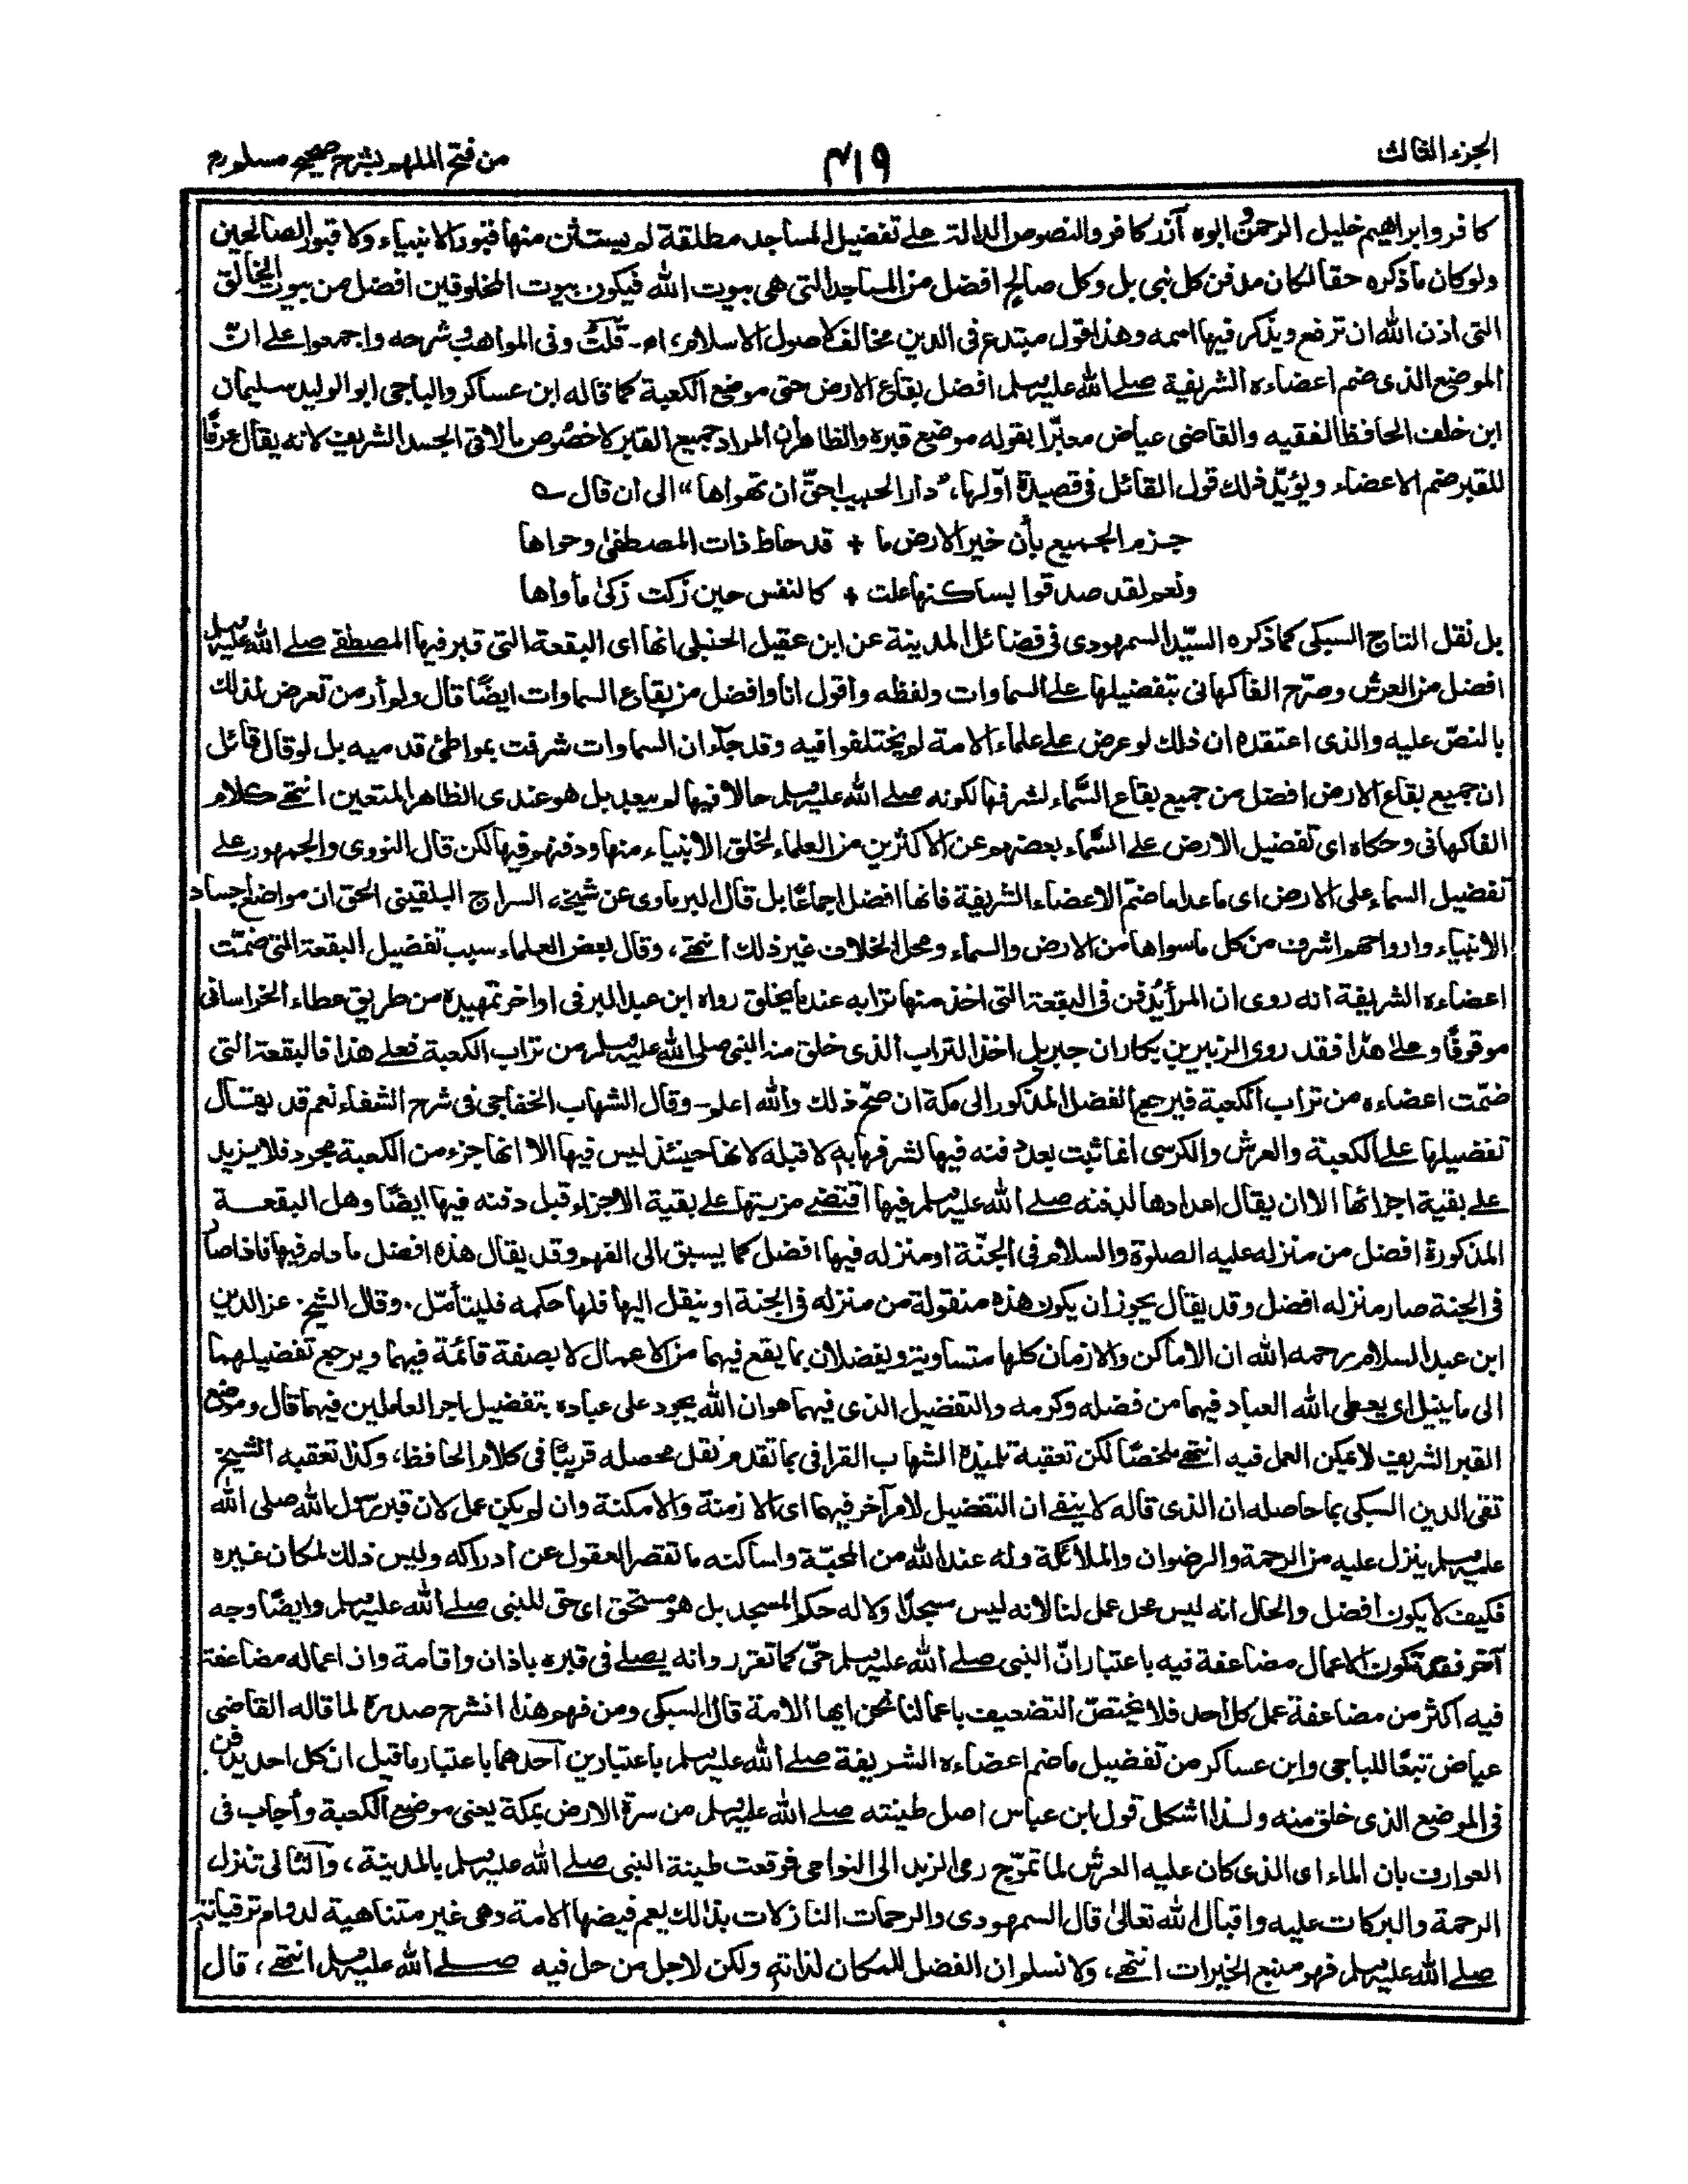 الجزء الثالث
٤١٩
من فتح الملهم بشرح صحيح مسلم
كافر وابراهيم خليل الرحمن وابوه آزر كافر والنصوص الدالة على تفضيل المساجد مطلقة لم يستثن منها قبور الانبياء ولا قبور الصالحين
ولو كان ما ذكره حقا لكان مدفن كل نبى بل وكل صالح افضل من المساجد التى هى بيوت الله فيكون بيوت المخلوقين افضل من بيوت الخالق
التى اذن الله ان ترفع ويذكر فيها اسمه وهذا قول مبتدع فى الدين مخالف لاصول الاسلام، اھ - قلت وفى المواهب وشرحه واجمعوا على انّ
الموضع الذى ضم اعضاءه الشريفة صلے الله عليه وسلم افضل بقاع الارض حتى موضع الكعبة كما قاله ابن عساكر والباجى ابو الوليد سليمان
ابن خلف الحافظ الفقيه والقاضى عياض معبّرا بقوله موضع قبره والظاهر ان المراد جميع القبر لا خصوص ما لاقى الجسد الشريف لانه يقال عرفًا
للقبر ضم الاعضاء ويؤيّد ذلك قول القائل فى قصيدة اوّلها، "دار الحبيب احقّ ان تهواها" الى ان قال ؎
جزم الجميع بأن خير الارض ما + قد حاط ذات المصطفىٰ وحواها
ونعم لقد صدقوا بساكنها علت + كالنفس حين زكت زكىٰ مأواها
بل نقل التاج السبكى كما ذكره السيّد السمهودى فى فضائل المدينة عن ابن عقيل الحنبلى انها اى البقعة التى قبر فيها المصطفے صلے الله عليه وسلم
افضل من العرش وصرّح الفاكهانى بتفضيلها على السماوات ولفظه واقول انا وافضل من بقاع السماوات ايضًا قال ولم أر من تعرض لذلك
بالنصّ عليه والذى اعتقده ان ذلك لو عرض على علماء الامة لم يختلفوا فيه وقد جاء ان السماوات شرفت بمواطئ قدميه بل لو قال قائل
ان جميع بقاع الارض افضل من جميع بقاع السّماء لشرفها لكونه صلے الله عليه وسلم حالا فيها لم يبعد بل هو عندى الظاهر المتعين انتهے كلام
الفاكهانى وحكاه اى تفضيل الارض على السّماء بعضهم عن الاكثرين من العلماء لخلق الانبياء منها ودفنهم فيها لكن قال النووى والجمهور على
تفضيل السماء على الارض اى ما عدا ما ضمّ الاعضاء الشريفة فانها افضل اجماعًا بل قال البرماوى عن شيخه السراج البلقينى الحق ان مواضع اجساد
الانبياء وارواحهم اشرف من كل ما سواها من الارض والسماء ومحل الخلاف غير ذلك انتهے، وقال بعض العلماء سبب تفضيل البقعة التى ضمّت
اعضاءه الشريفة انه روى ان المرأ يدفن فى البقعة التى اخذ منها ترابه عند ما يخلق رواه ابن عبد البر فى اواخر تمهيده من طريق عطاء الخراسانى
موقوفًا وعلى هذا فقد روى الزبير بن بكار ان جبريل اخذ التراب الذى خلق منه النبى صلى الله عليه وسلم من تراب الكعبة فعلے هذا فالبقعة التى
ضمّت اعضاءه من تراب الكعبة فيرجع الفضل المذكور الى مكة ان صحّ ذلك والله اعلم - وقال الشهاب الخفاجى فى شرح الشفاء نعم قد يقال
تفضيلها على الكعبة والعرش والكرسى انما ثبت بعد دفنه فيها لشرفها به لا قبله لانها حينئذ ليس فيها الا انها جزء من الكعبة مجرد فلا يزيد
على بقية اجزائها الا ان يقال اعدادها لدفنه صلے الله عليه وسلم فيها اقتضے مزيتها على بقية الاجزاء قبل دفنه فيها ايضًا وهل البقعة
المذكورة افضل من منزله عليه الصلوة والسلام فى الجنّة او منزله فيها افضل كما يسبق الى الفهم وقد يقال هذه افضل ما دام فيها فاذا صار
فى الجنة صار منزله افضل وقد يقال يجوز ان يكون هذه منقولة من منزله فى الجنة او ينقل اليها فلها حكمه فليتأمّل. وقال الشيخ عز الدين
ابن عبد السلام رحمه الله ان الاماكن والازمان كلها متساوية ويفضلان بما يقع فيهما من الاعمال لا بصفة قائمة فيهما ويرجع تفضيلهما
الى ما ينيل اى يعطى الله العباد فيهما من فضله وكرمه والتفضيل الذى فيهما هو ان الله يجود على عباده بتفضيل اجر العاملين فيهما قال وموضع
القبر الشريف لا يمكن العمل فيه انتهے ملخصًا لكن تعقبه تلميذه الشهاب القرافى بما تقدم نقل محصله قريبًا فى كلام الحافظ، وكذا تعقبه الشيخ
تقى الدين السبكى بما حاصله ان الذى قاله لا ينفے ان التفضيل لامر آخر فيهما اى الازمنة والامكنة وان لم يكن عمل لان قبر رسول الله صلى الله
عليه وسلم ينزل عليه من الرحمة والرضوان والملائكة وله عند الله من المحبّة ولساكنه ما تقصر العقول عن ادراكه وليس ذلك لمكان غيره
فكيف لا يكون افضل والحال انه ليس محل عمل لنا لانه ليس مسجدًا ولا له حكم المسجد بل هو مستحق اى حق للنبى صلے الله عليه وسلم وايضًا وجه
آخر فقد تكون الاعمال مضاعفة فيه باعتبار انّ النبى صلے الله عليه وسلم حىّ كما تقرر وانه يصلے فى قبره باذان واقامة وان اعماله مضاعفة
فيه اكثر من مضاعفة عمل كل احد فلا يختصّ التضعيف باعمالنا نحن ايها الامة قال السبكى ومن فهم هذا انشرح صدره لما قاله القاضى
عياض تبعًا للباجى وابن عساكر من تفضيل ما ضم اعضاءه الشريفة صلے الله عليه وسلم باعتبارين آحدهما باعتبار ما قيل ان كل احد يدفن
فى الموضع الذى خلق منه ولذا اشكل قول ابن عباس اصل طينته صلے الله عليه وسلم من سرّة الارض بمكة يعنى موضع الكعبة وأجاب فى
العوارف بان الماء اى الذى كان عليه العرش لما تموّج رمى الزبد الى النواحى فوقعت طينة النبى صلے الله عليه وسلم بالمدينة، وآلثانى تنزل
الرحمة والبركات عليه واقبال الله تعالىٰ قال السمهودى والرحمات النازلات بذالك يعم فيضها الامة وهى غير متناهية لدوام ترقياته
صلے الله عليه وسلم فهو منبع الخيرات انتهے، ولا نسلم ان الفضل للمكان لذاته ولكن لاجل من حل فيه صلے الله عليه وسلم انتهے، قال